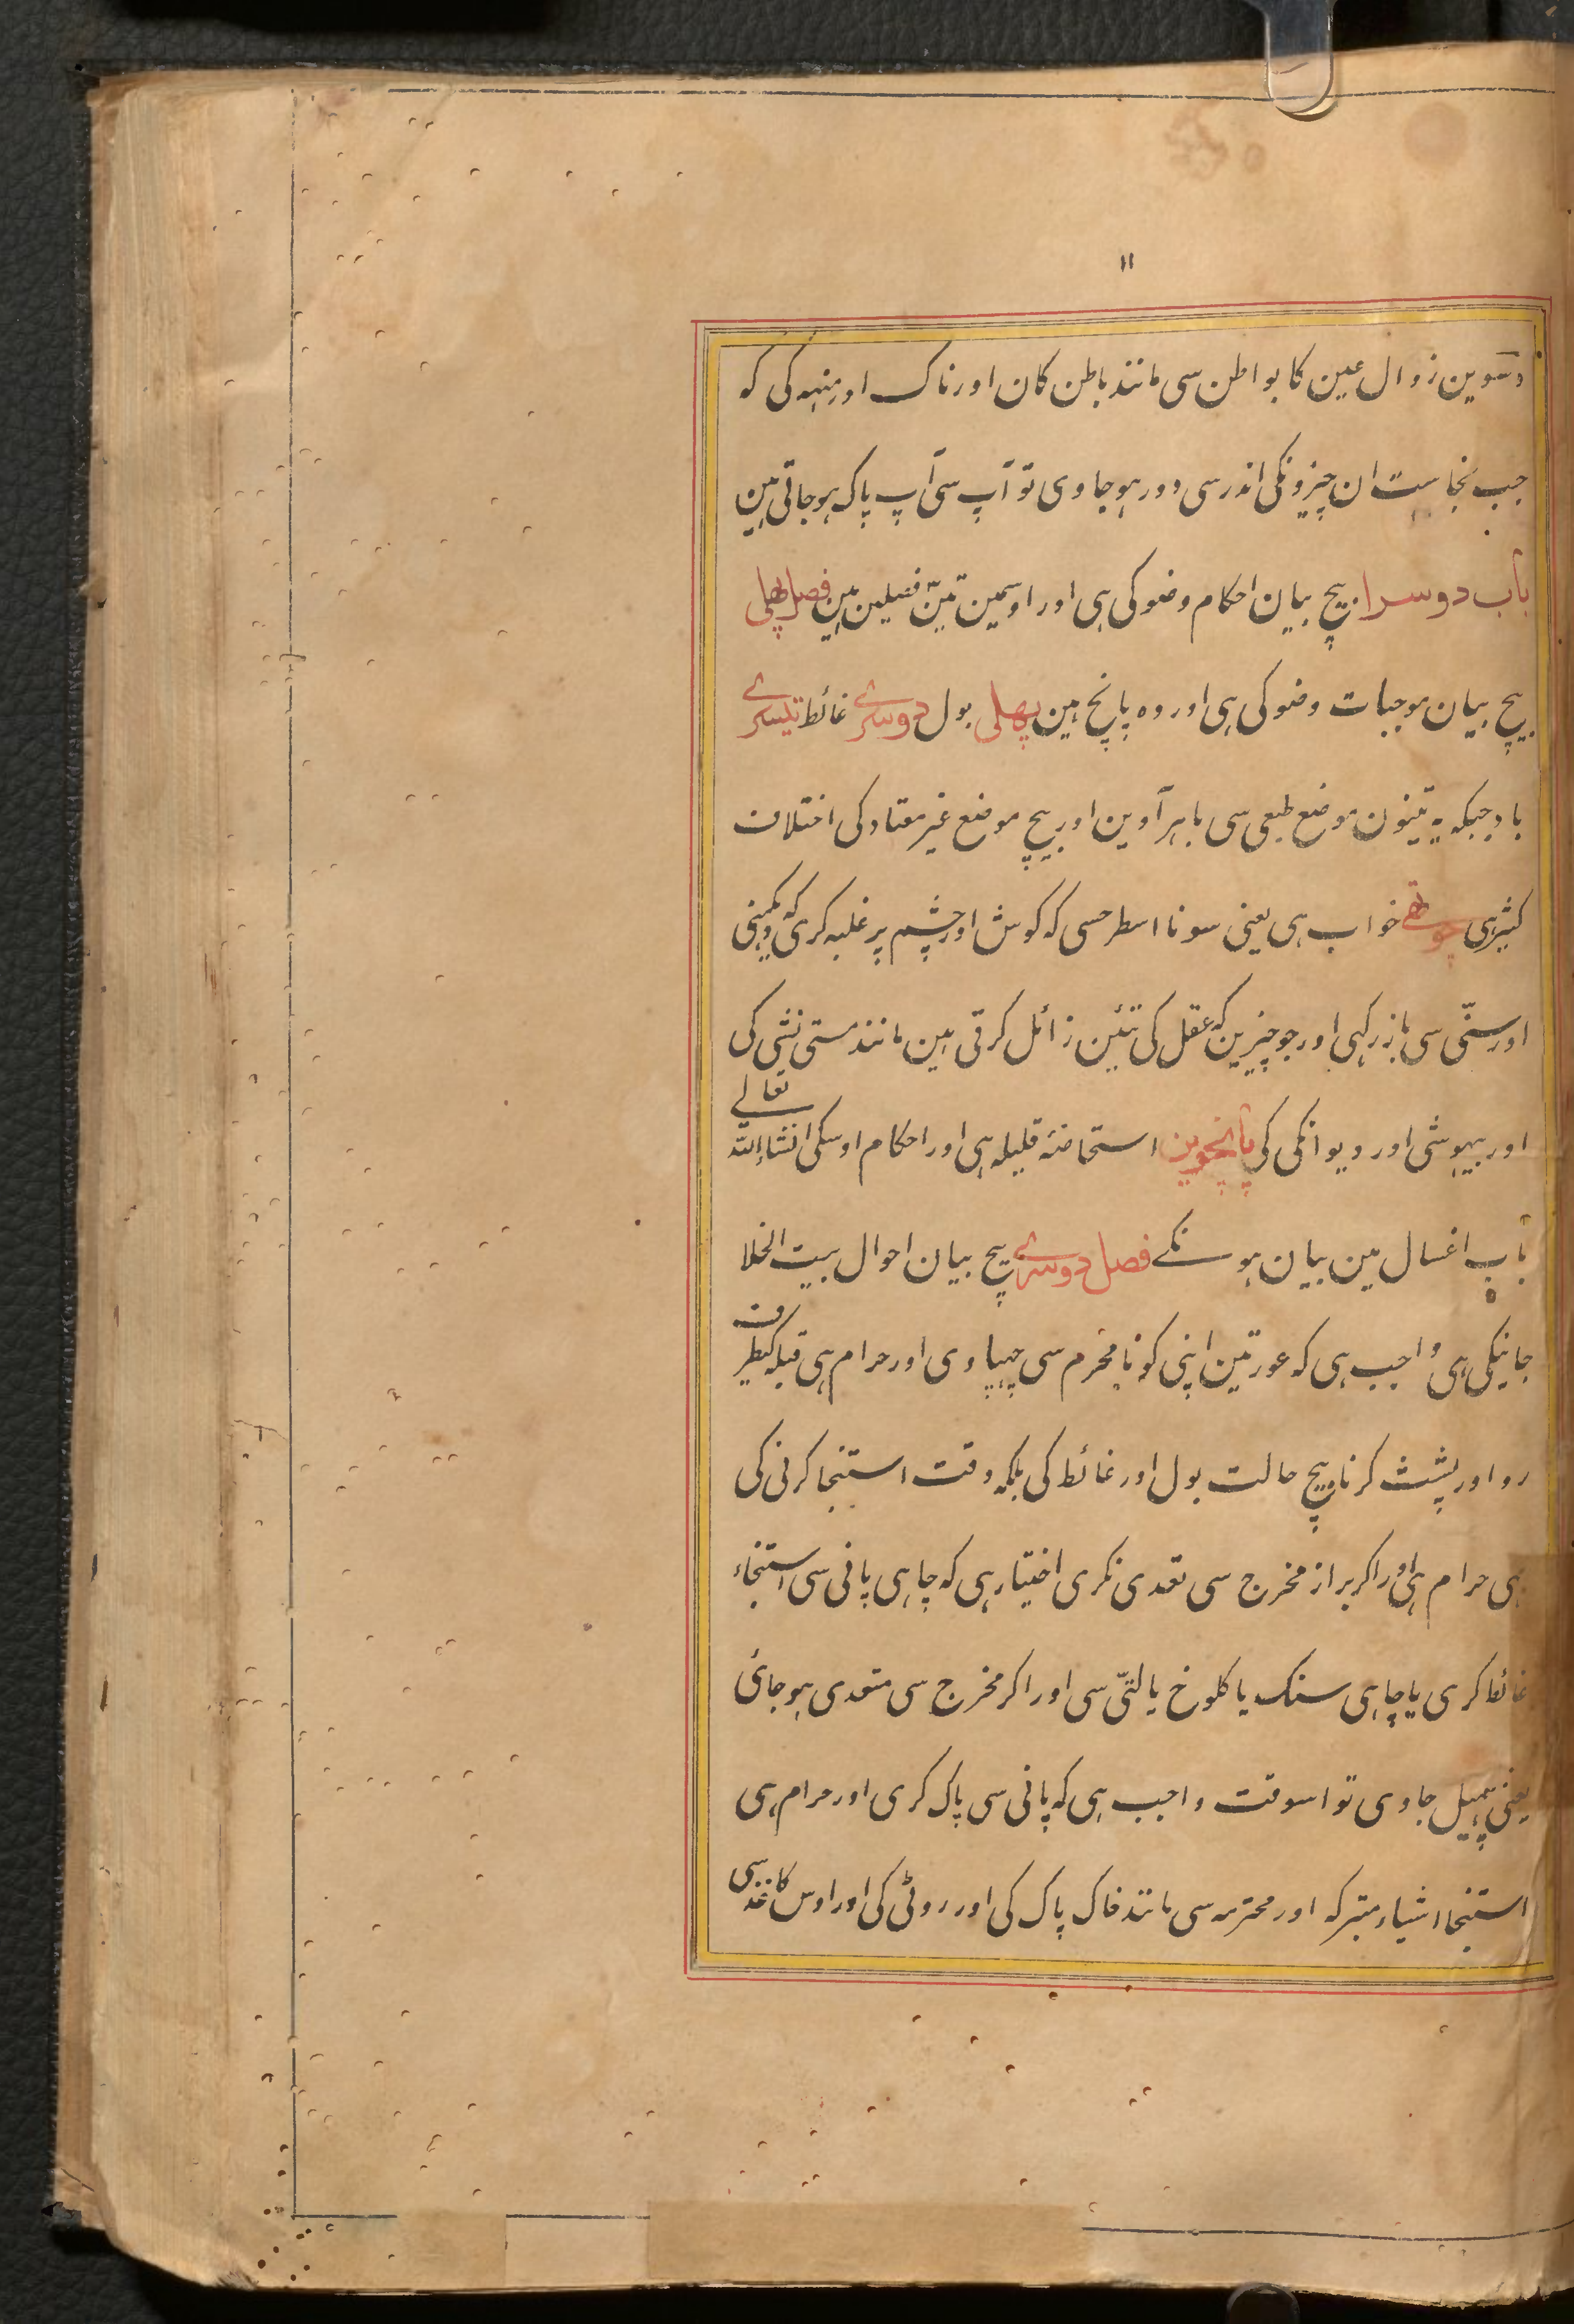 ۱۱
دسوین زوال عین کا بواطن سی مانند باطن کان اور ناک اور منہہ کی کہ
جب نجاست ان چیزونکی اندر سی دور ہو جاوی تو آپ سی آپ پاک ہو جاتی ہین
باب دوسرا بیچ بیان احکام وضو کی ہی اور اوسمین تین فصلین ہین فصل پہلی
بیچ بیان موجبات وضو کی ہی اور وہ پانچ ہین پہلی بول دوسرے غائط تیسرے
باد جبکہ یہ تینون موضع طبعی سی باہر آوین اور بیچ موضع غیر معتاد کی اختلاف
کثیر ہی چوتھے خواب ہی یعنی سونا اسطرحسی کہ کوش اور چشم پر غلبہ کری کہ دیکہنی
اور سنّی سی باز رکہی اور جو چیزین کہ عقل کی تئین زائل کرتی ہین مانند مستی نشی کی
اور بیہوشی اور دیوانکی کی پانچوین استحاضہٴ قلیلہ ہی اور احکام اوسکی انشاءاللہ تعالے
باب اغسال مین بیان ہونکے فصل دوسرے بیچ بیان احوال بیت الخلا
جانیکی ہی واجب ہی کہ عورتین اپنی کو نامحرم سی چہپاوی اور حرام ہی قبلہ کیطرف
رو اور پشت کرنا بیچ حالت بول اور غائط کی بلکہ وقت استنجا کرنی کی
ہی حرام ہی اور اکر براز مخرج سی تعدی نکری اختیار ہی کہ چاہی پانی سی استنجاء
غائط کری یا چاہی سنک یا کلوخ یا لتّی سی اور اکر مخرج سی متعدی ہو جائ
یعنی پہیل جاوی تو اسوقت واجب ہی کہ پانی سی پاک کری اور حرام ہی
استنجا اشیاء متبرکہ اور محترمہ سی مانند خاک پاک کی اور روٹی کی اور اوس کاغذ سی